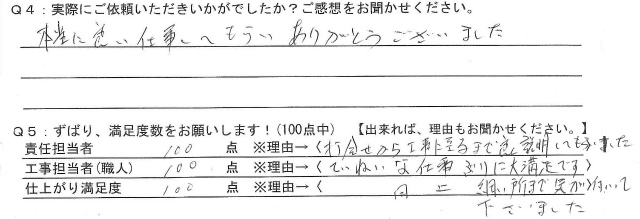 Q4：実際にご依頼いただきいかがでしたか？ご感想をお聞かせください。
本当に良い仕事してもらい ありがとうございました
Q5：ずばり、満足度数をお願いします！(100点中) 【出来れば、理由もお聞かせください。】
責任担当者 100 点 ※理由→〈打合せから工事に至るまで良く説明してもらいました
工事担当者(職人) 100 点 ※理由→〈ていねいな仕事ぶりに大満足です〉
仕上がり満足度 100 点 ※理由→〈 同上 細い所まで気が〉付いて
下さいました